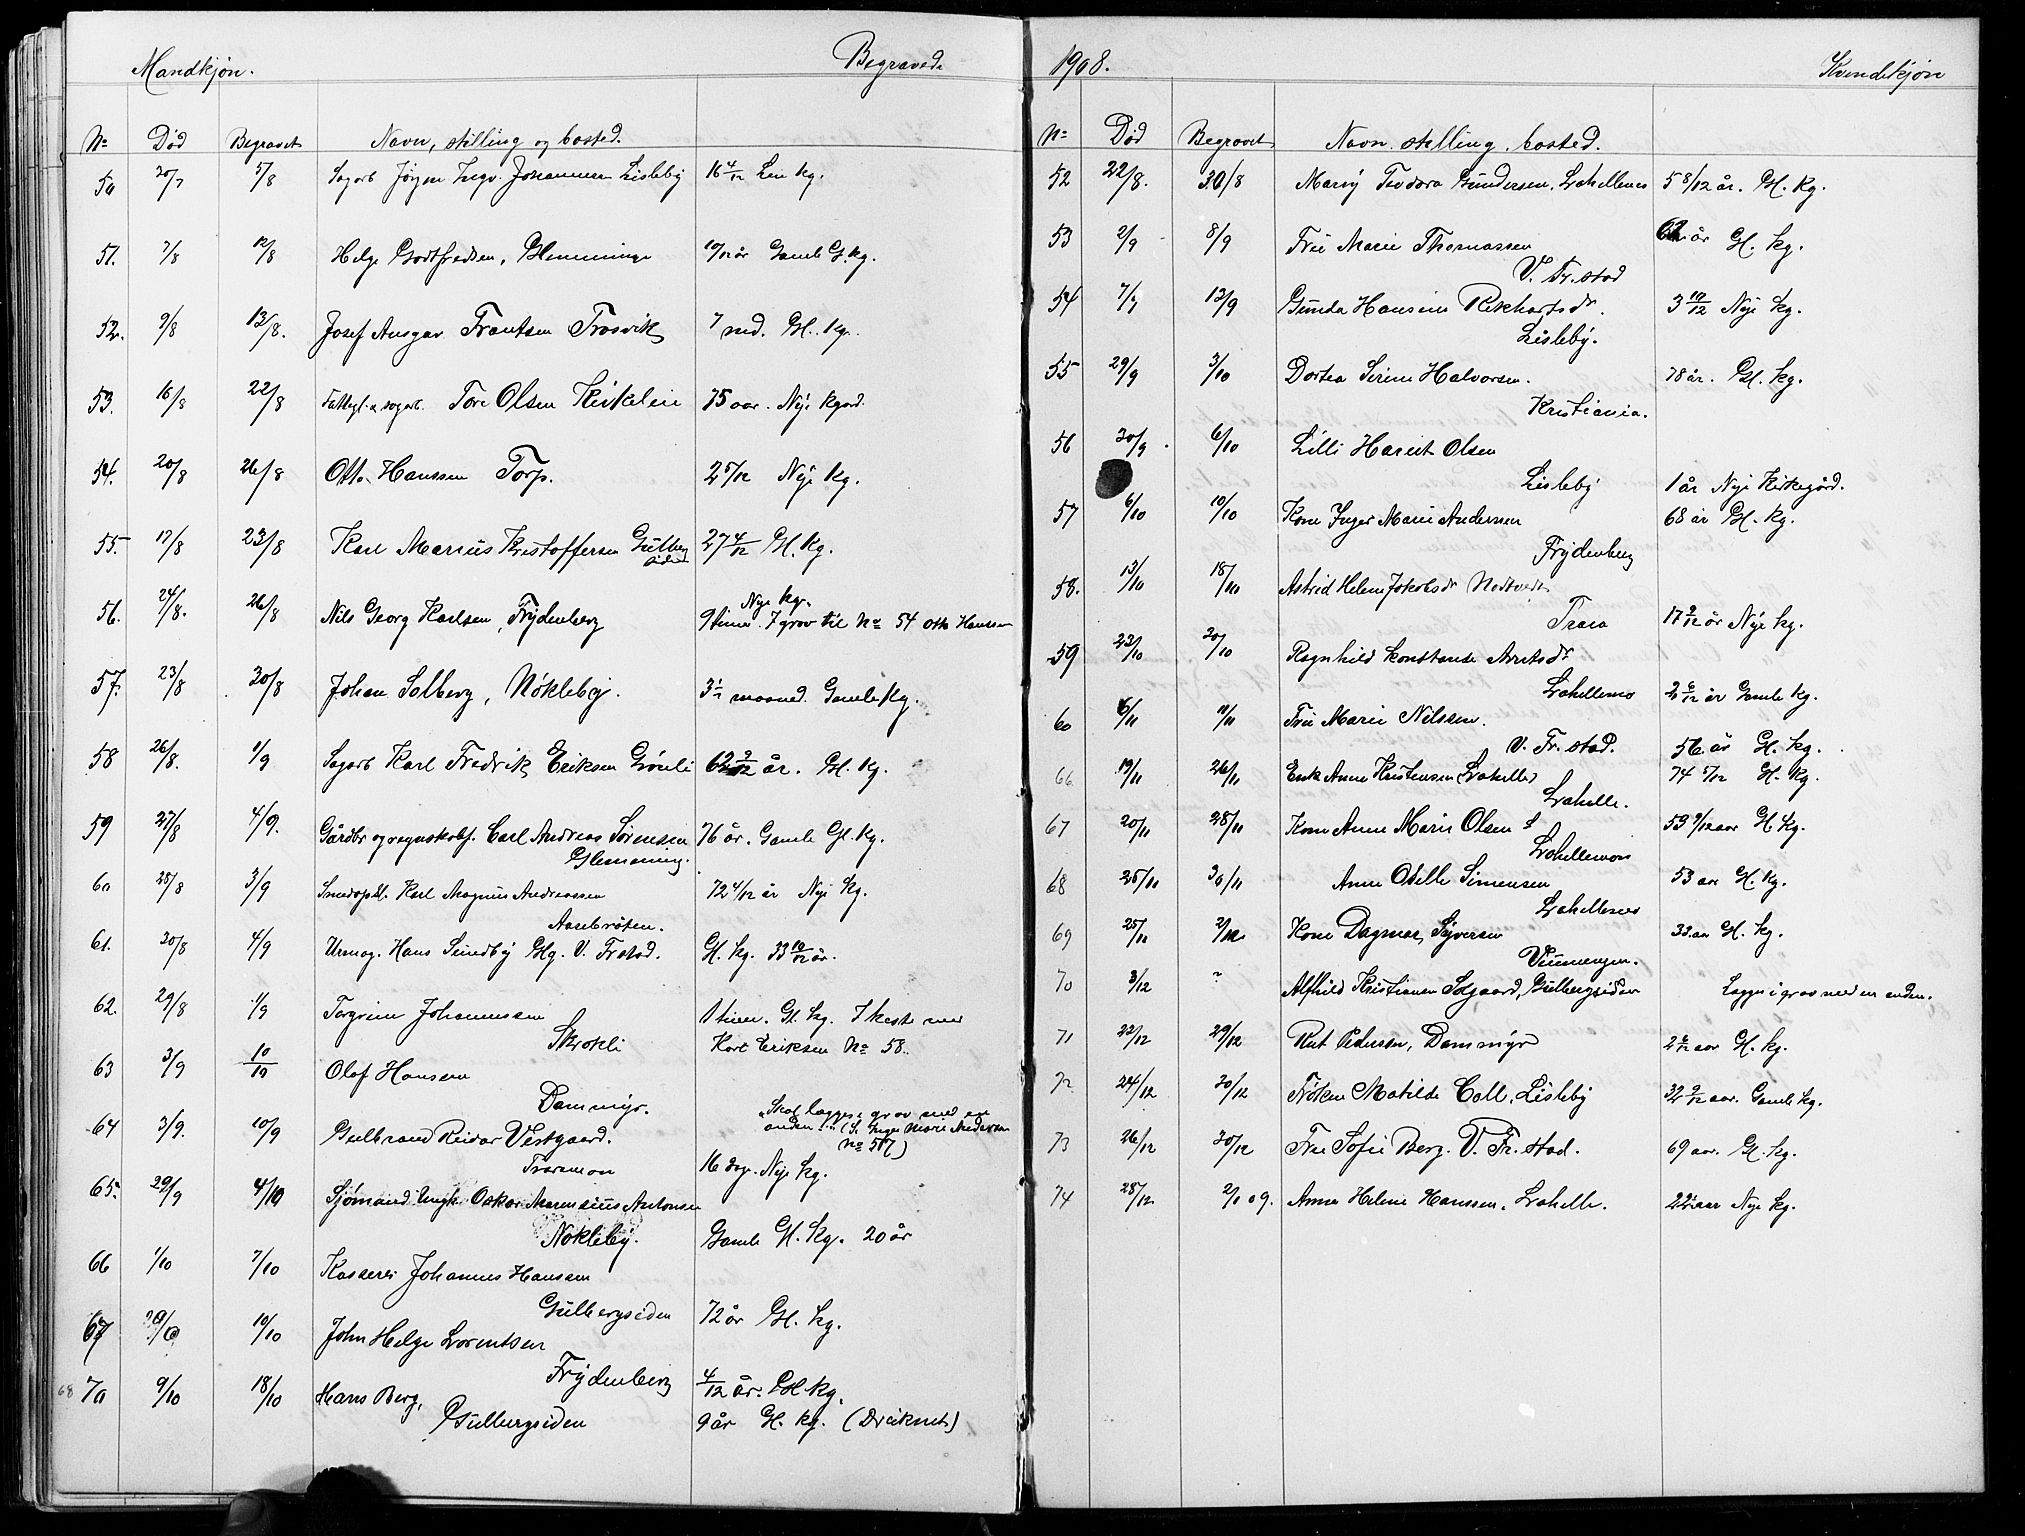 Mandkjøn. Begravede
No Død Begravet Navn, stilling og bosted.
50 20/7 5/8 Sagarb Jørgen Ingv. Johannesen Lisleby 16 4/12 Leie kg.
51. 7/8 12/8 Helge Godtfredsen, Glemminge 10/12 år Gamle G. kg.
52. 9/8 13/8. Josef Ansgar Frantsen Trosvik 7 md. Gl. kg.
53. 16/8 22/8 sagarb. Tore Olsen Kirkeleie 75 aar. Nye kgård.
54. 20/8 26/8 Otto Hanssen Torp. 2 5/12 Nye kg.
55. 17/8 23/8 Karl Marius Kristoffersen Gulberg
siden 27 4/12 Gl. kg.
56. 24/8. 26/8 Nils Georg Karlsen, Frydenberg Nye kg.
9 timer. I grav til No 54 Otto Hanssen
57. 23/8 30/8 Johan Solberg, Nøkleby. 3 1/2 maaned. Gamle kg.
58 26/8. 1/9 Sagarb Karl Fredrik Eriksen Grønli 62 9/12 år. Gl. kg.
59 27/8 4/9. Gårdbr og regnskabsf. Carl Andreas Sørensen 76 år. Gamle Gl. kg.
Glemming.
60 28/8 3/9 Smedopds. Karl Magnus Andreassen 72 4/12 år Nye kg.
Aasebråten.
61. 30/8 4/9 Urmag. Hans Sundby Gg. V. Frstad. Gl. kg. 33 10/12 år.
62. 29/8 1/9 Torgrim Johannessen 1 time. Gl. kg. I kiste med
Skrokli Karl Eriksen No 58.
63 3/9 10/10 Olaf Hansen
Dammyr.
64 3/9. 10/9 Gulbrand Reidar Vestgaard. Skal lægges i grav med en
anden (S. Inger Marie Andersen
No 57)
Traramoa 16 dage. Nye kg.
65. 29/9 4/10 Sjømand Ungk. Oskar Marensius Antonsen
Nøkleby. Gamle Gl. kg. 20 år
66 1/10 7/10 Kasserer Johannes Hanssen
Gulbergsiden 72 år Gl. kg.
67 10/10 John Helge Lorentsen
Frydenberg 4/12 år. Gl. kg.
68 70 9/10 18/10 Hans Berg,
Gulbergsiden 9 år Gl. kg. (Druknet)
1908. Kvindekjøn
No Død Begravet Navn. stilling. bosted.
52 22/8. 30/8 Marry Teodora Gundersen. Lahellemo 5 8/12 år. Gl. kg.
53 2/9 8/9 Frue Marie Thomassen 62 år Gl. kg.
V. Fr. stad
54 7/9 13/9 Gunda Hansine Rikhartsdr. 3 10/12 Nye kg.
Lisleby.
55 29/9 3/10 Dortea Serine Halvorsen. 78 år. Gl. kg.
Kristiania.
56 30/9. 6/10 Lilli Harriet Olsen
Lisleby 1 år Nye Kirkegård.
57 6/10 10/10 Kone Inger Marie Andersen 68 år Gl. kg.
Frydenberg
58. 13/10 18/10 Astrid Helene Jakobsdr Nodtvedt
Trara 17 9/12 år Nye kg.
59 23/10 30/10 Ragnhild Konstanse Arntsdr
Lahellemo 2 6/12 år Gamle kg.
60 6/11 11/11 Frue Marie Nilssen.
V. Fr. stad. 56 år Gl. kg.
66 19/11 26/11 Enke Anne Kristensen (Lahelle) 74 5/12 Gl. kg.
Lahelle.
67 20/11 28/11 Kone Anne Marie Olsen 53 9/12 aar Gl kg.
Lahellemoen
68 25/11 30/11 Anne Odelle Simensen 53 aar Gl. kg.
Lahellemo
69 25/11 2/12 Kone Dagmar Syversen 33. aar Gl. kg.
Veumengen.
70 3/12 " Alfhild Kristianne Solgaard, Gulbergsiden Lægges i grav med en anden.
71 22/12 29/12 Rut Pedersen, Dammyr 2 6/12 aar Gl. kg.
72 24/12 30/12 Frøken Matilde Coll. Lisleby 32 9/12 aar. Gamle kg.
73 26/12 30/12 Frue Sofie Berg. V. Fr. stad. 69 aar. Gl. kg.
74 28/12 2/1 09. Anna Helene Hanssen. Lahelle. 22 aar Nye kg.